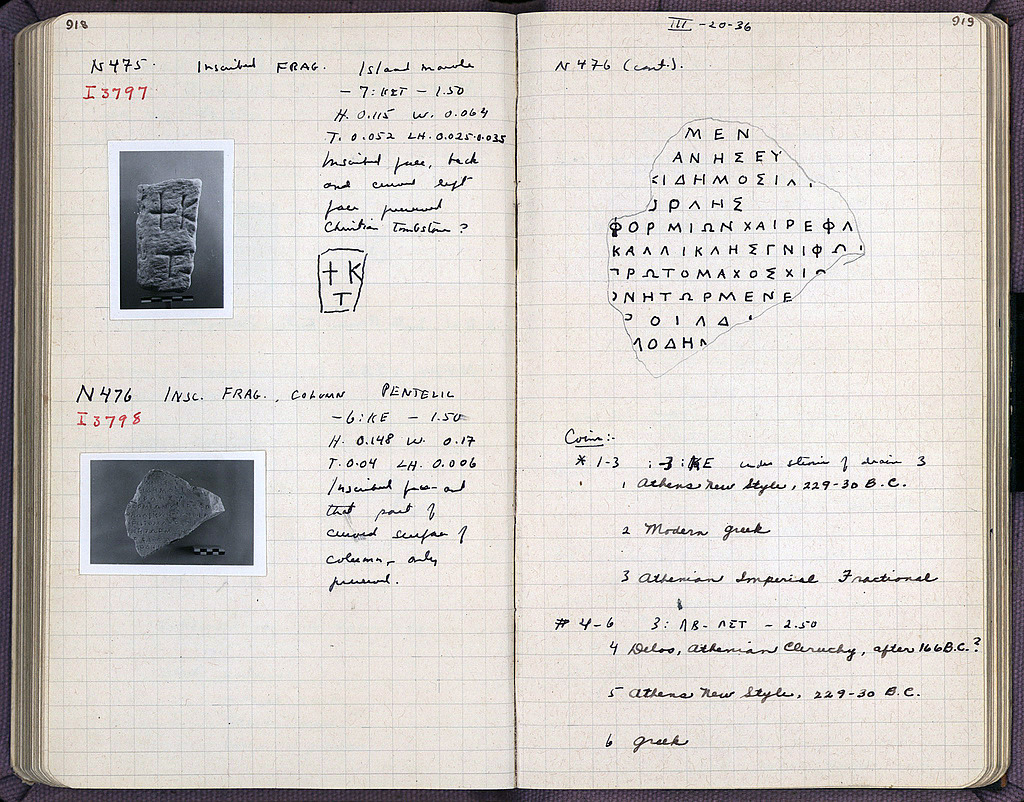 918
N 475. Inscribed FRAG. Island marble
I 3797
– 7: ΚΣΤ – 1.50
H. 0.115 W. 0.064
T. 0.052 LH. 0.025-0.035
Inscribed face, back
and curved left
face preserved
Christian Tombstone?
† K
T
N 476 INSC. FRAG., COLUMN PENTELIC
I 3798
– 6: ΚΕ – 1.50
H. 0.148 W. 0.17
T. 0.04 LH. 0.006
Inscribed face and
that part of
curved surface of
column, only
preserved.
III -20-36
919
N 476 (cont.).
ΜΕΝ
ΑΝΗΣΕΥ
ΙΔΗΜΟΣΙΛ
ΡΛΗΣ
ΦΟΡΜΙΩΝΧΑΙΡΕΦΛ
ΚΑΛΛΙΚΛΗΣΓΝΙΦΩ
ΡΩΤΟΜΑΧΟΣΧΙ
ΝΗΤΩΡΜΕΝΕ
ΟΙΛΔ
ΛΟΔΗ
Coins:-
* 1-3 : 3: ΚΕ under stones of drain 3
1 Athens New Style, 229-30 B.C.
2 Modern Greek
3 Athenian Imperial Fractional
# 4-6 3: ΛΒ-ΛΣΤ – 2.50
4 Delos, Athenian Cleruchy, after 166 B.C.?
5 Athens New Style, 229-30 B.C.
6 Greek